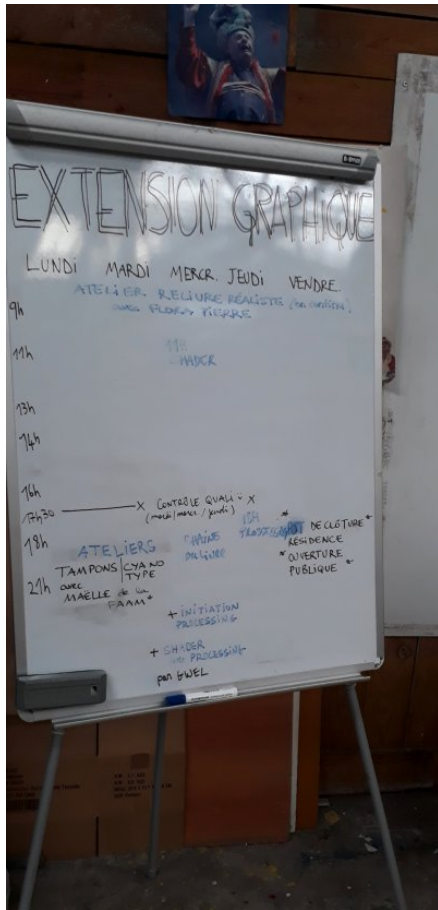 EXTENSION GRAPHIQUE
LUNDI MARDI MERCR. JEUDI VENDRE.
ATELIER RELIURE RÉALISTE (en continu)
avec FLORA PIERRE
9h
11h
11h
SHADER
13h
14h
16h
17h30
X CONTRÔLE QUALI X
(mardi/mercr/jeudi)
18h
18h
ATELIERS
TAMPONS | CYANO
TYPE
avec
MAËLLE de la
FAAM*
21h
CHAÎNE
DU LIVRE
DE CLÔTURE*
RÉSIDENCE
* OUVERTURE
PUBLIQUE *
+ INITIATION
PROCESSING
+ SHADER
PROCESSING
par GWEL